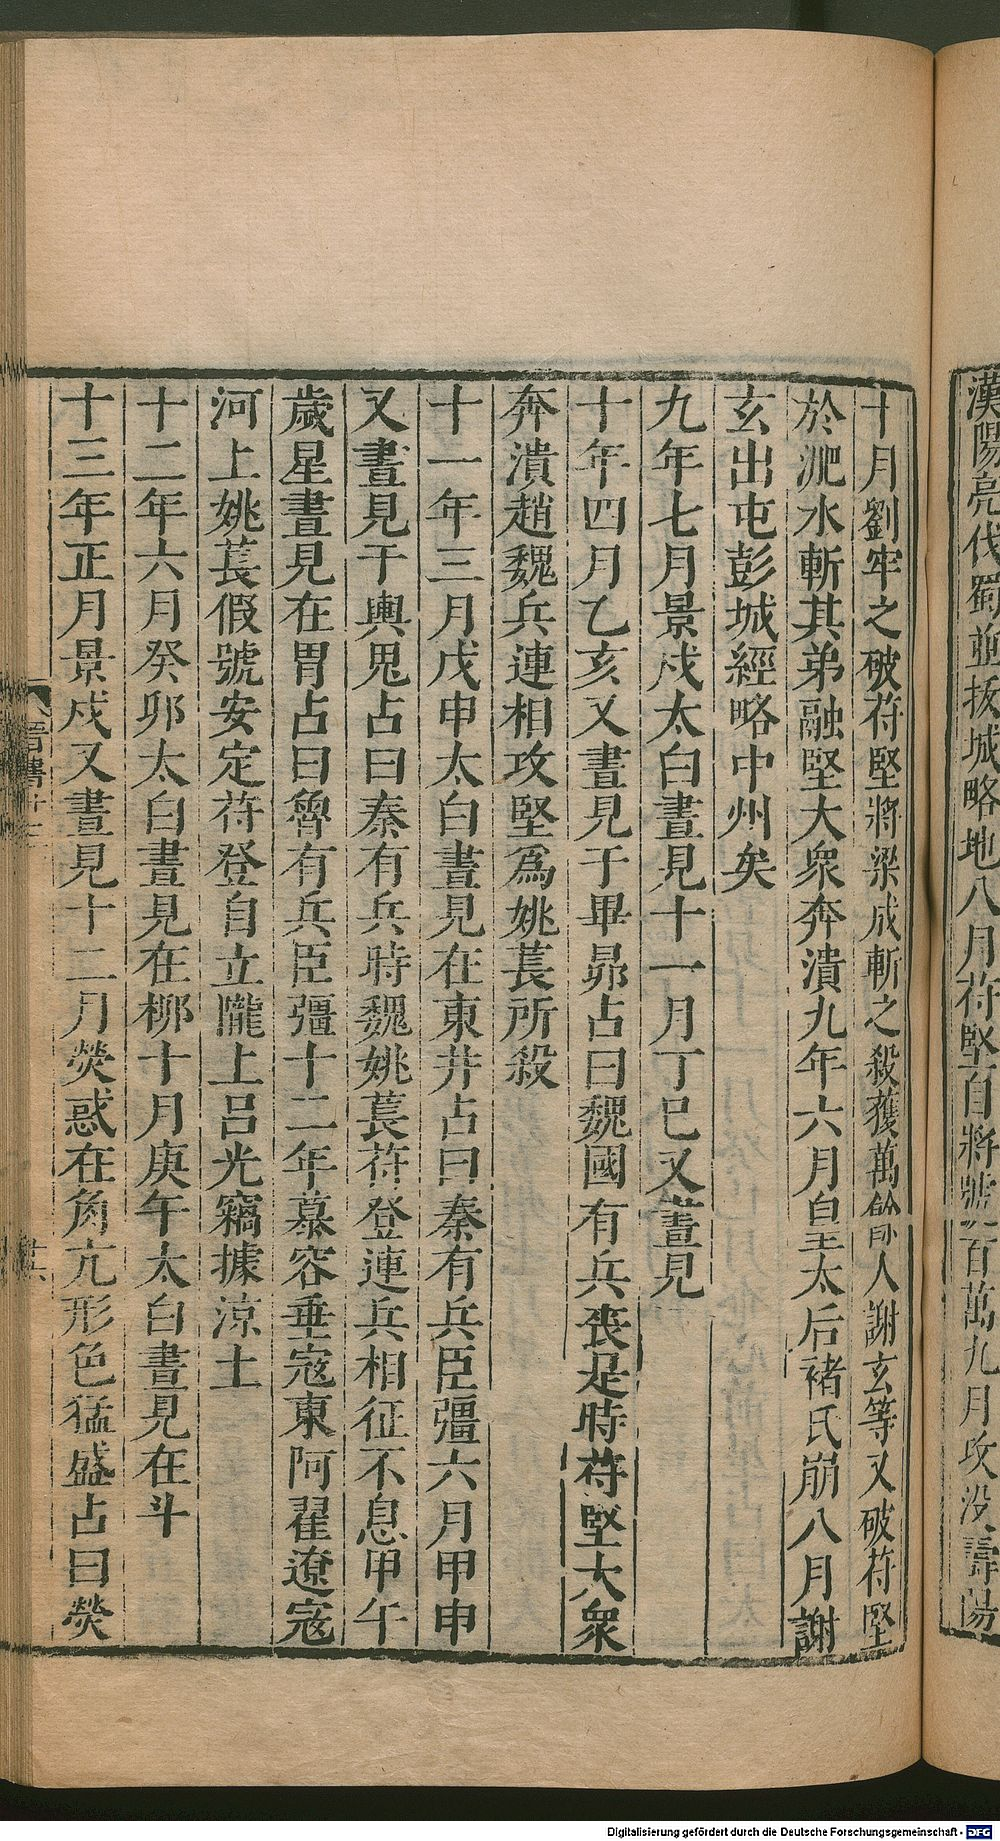 漢陽亮伐蜀並拔城略地八月苻堅自將號百萬九月攻沒壽陽
十月劉牢之破苻堅將梁成斬之殺獲萬餘人謝玄等又破苻堅
於淝水斬其弟融堅大衆奔潰九年六月皇太后褚氏崩八月謝
玄出屯彭城經略中州矣
九年七月景戍太白晝見十一月丁巳又晝見
十年四月乙亥又晝見于畢昴占曰魏國有兵喪是時苻堅大衆
奔潰趙魏兵連相攻堅爲姚萇所殺
十一年三月戊申太白晝見在東井占曰秦有兵臣彊六月甲申
又晝見于輿鬼占曰秦有兵時魏姚萇苻登連兵相征不息甲午
歲星晝見在胃占曰魯有兵臣彊十二年慕容垂寇東阿翟遼寇
河上姚萇假號安定苻登自立隴上呂光竊據涼土
十二年六月癸卯太白晝見在柳十月庚午太白晝見在斗
十三年正月景戍又晝見十二月熒惑在角亢形色猛盛占曰熒
Digitalisierung gefördert durch die Deutsche Forschungsgemeinschaft - DFG